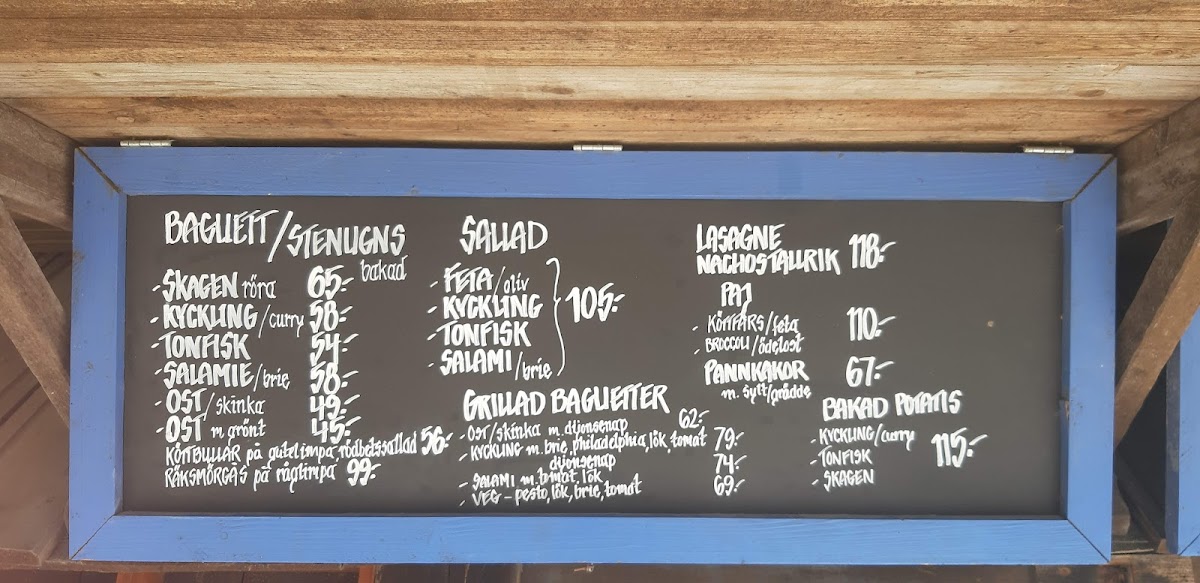 BAGUETT/STENUGNS
bakad
- SKAGEN röra 65:-
- KYCKLING/curry 58:-
- TONFISK 54:-
- SALAMIE/brie 58:-
- OST/skinka 49:-
- OST m grönt 45:-
KÖTTBULLAR på gutelimpa, rödbetssallad 56:-
RÄKSMÖRGÅS på råglimpa 99:-
SALLAD
- FETA/oliv
- KYCKLING
- TONFISK
- SALAMI/brie
105:-
GRILLAD BAGUETTER
- OST/skinka m. dijonsenap 62:-
- KYCKLING m. brie, philadelphia, lök, tomat 79:-
dijonsenap
- SALAMI m. tomat, lök 74:-
- VEG - pesto, lök, brie, tomat 69:-
LASAGNE
NACHOSTALLRIK 118:-
PAJ
- KÖTTFÄRS/feta
- BROCCOLI/ädelost
110:-
PANNKAKOR 67:-
m. sylt/grädde
BAKAD POTATIS
- KYCKLING/curry
- TONFISK
- SKAGEN
115:-